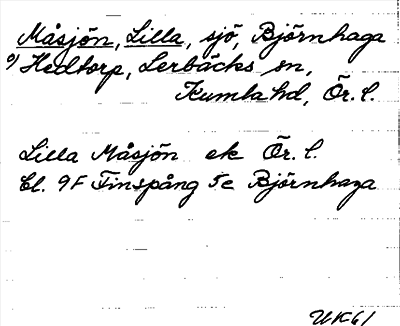 Måsjön, Lilla, sjö, Björnhaga
o) Hedtorp, Lerbäcks sn,
Kumla hd, Ör. l.
Lilla Måsjön ek Ör. l.
Bl. 9F Finspång 5c Björnhaga
UK61